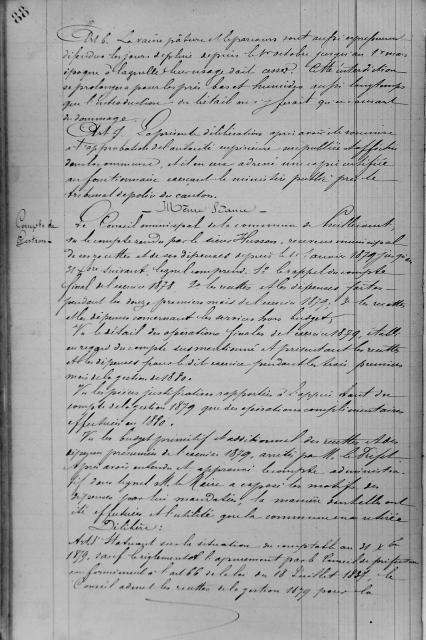 88
Art 6. La vaine pâture et le parcours sont aussi expressément
défendus les jours de pluie depuis le 1er octobre jusqu'au 1er mars
époque à laquelle leur usage doit cesser. Cette interdiction
se prolongera pour les prés bas et humides aussi longtemps
que l'introduction du bétail
de dommage.
Art 7. La présente délibération après avoir été soumise
à l'approbation de l'autorité supérieure sera publiée et affichée
dans la commune, et il en sera adressé une copie certifiée
au fonctionnaire exerçant le ministère public près le
tribunal de police du canton.
Même Séance
Compte de
Gestion
Le Conseil municipal de la commune de
Vu le compte rendu par le sieur Husson, receveur municipal
de ses recettes et de ses dépenses depuis le 1er janvier 1879 jusqu'au
31 Xbre suivant, lequel comprend: 1° le rappel du compte
final de l'exercice 1878 2° les recettes et les dépenses faites
pendant les douze premiers mois de l'exercice 1879, 3° les recettes
et les dépenses concernant les services hors budget;
Vu le détail des opérations finales de l'exercice 1879, établi
en regard du compte susmentionné et présentant les recettes
et les dépenses pour le dit exercice pendant les trois premiers
mois de la gestion de 1880.
Vu les pièces justificatives rapportées à l'appui tant du
compte de la gestion 1879 que des opérations complémentaires
effectuées en 1880.
Vu les budgets primitif et additionnel des recettes et des
dépenses présumées de l'exercice 1879, arrêtés par M. le Préfet
Après avoir entendu et approuvé le compte administra-
tif dans lequel M. le Maire a exposé les motifs des
dépenses par lui mandatées, la manière dont elles ont
été effectuées et l'utilité que la commune en a retirée
Délibère:
Art 1er Statuant sur la situation du comptable au 31 Xbre
1879, sauf le règlement et l'apurement par le Conseil de préfecture
conformément à l'art 66 de la loi du 18 Juillet 1837, le
Conseil admet les recettes de la gestion 1879 pour la